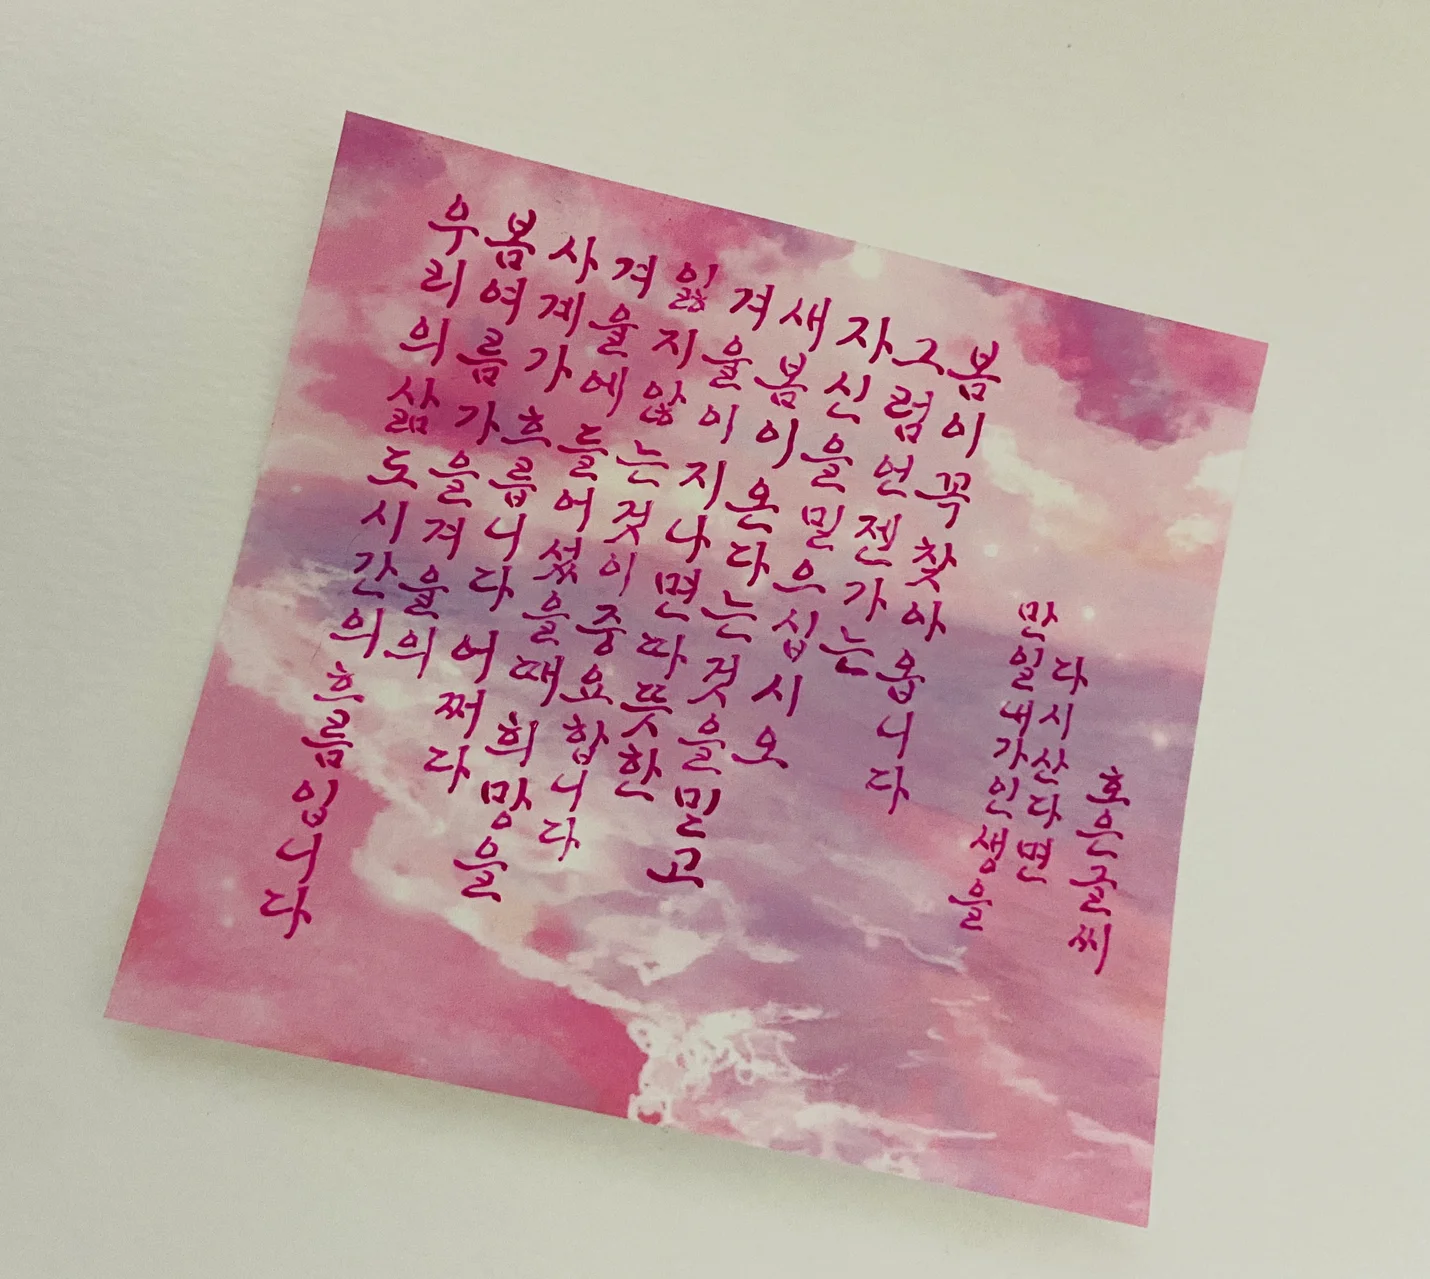 우리의 삶도 시간의 흐름입니다
봄 여름 가을 겨울의
사계가 흐릅니다 어쩌다
겨울에 들어섰을 때 희망을
잃지 않는 것이 중요합니다
겨울이 지나면 따뜻한
새봄이 온다는 것을 믿고
자신을 믿으십시오
그럼 언젠가는
봄이 꼭 찾아옵니다
만일 내가 인생을
다시 산다면
호은글씨